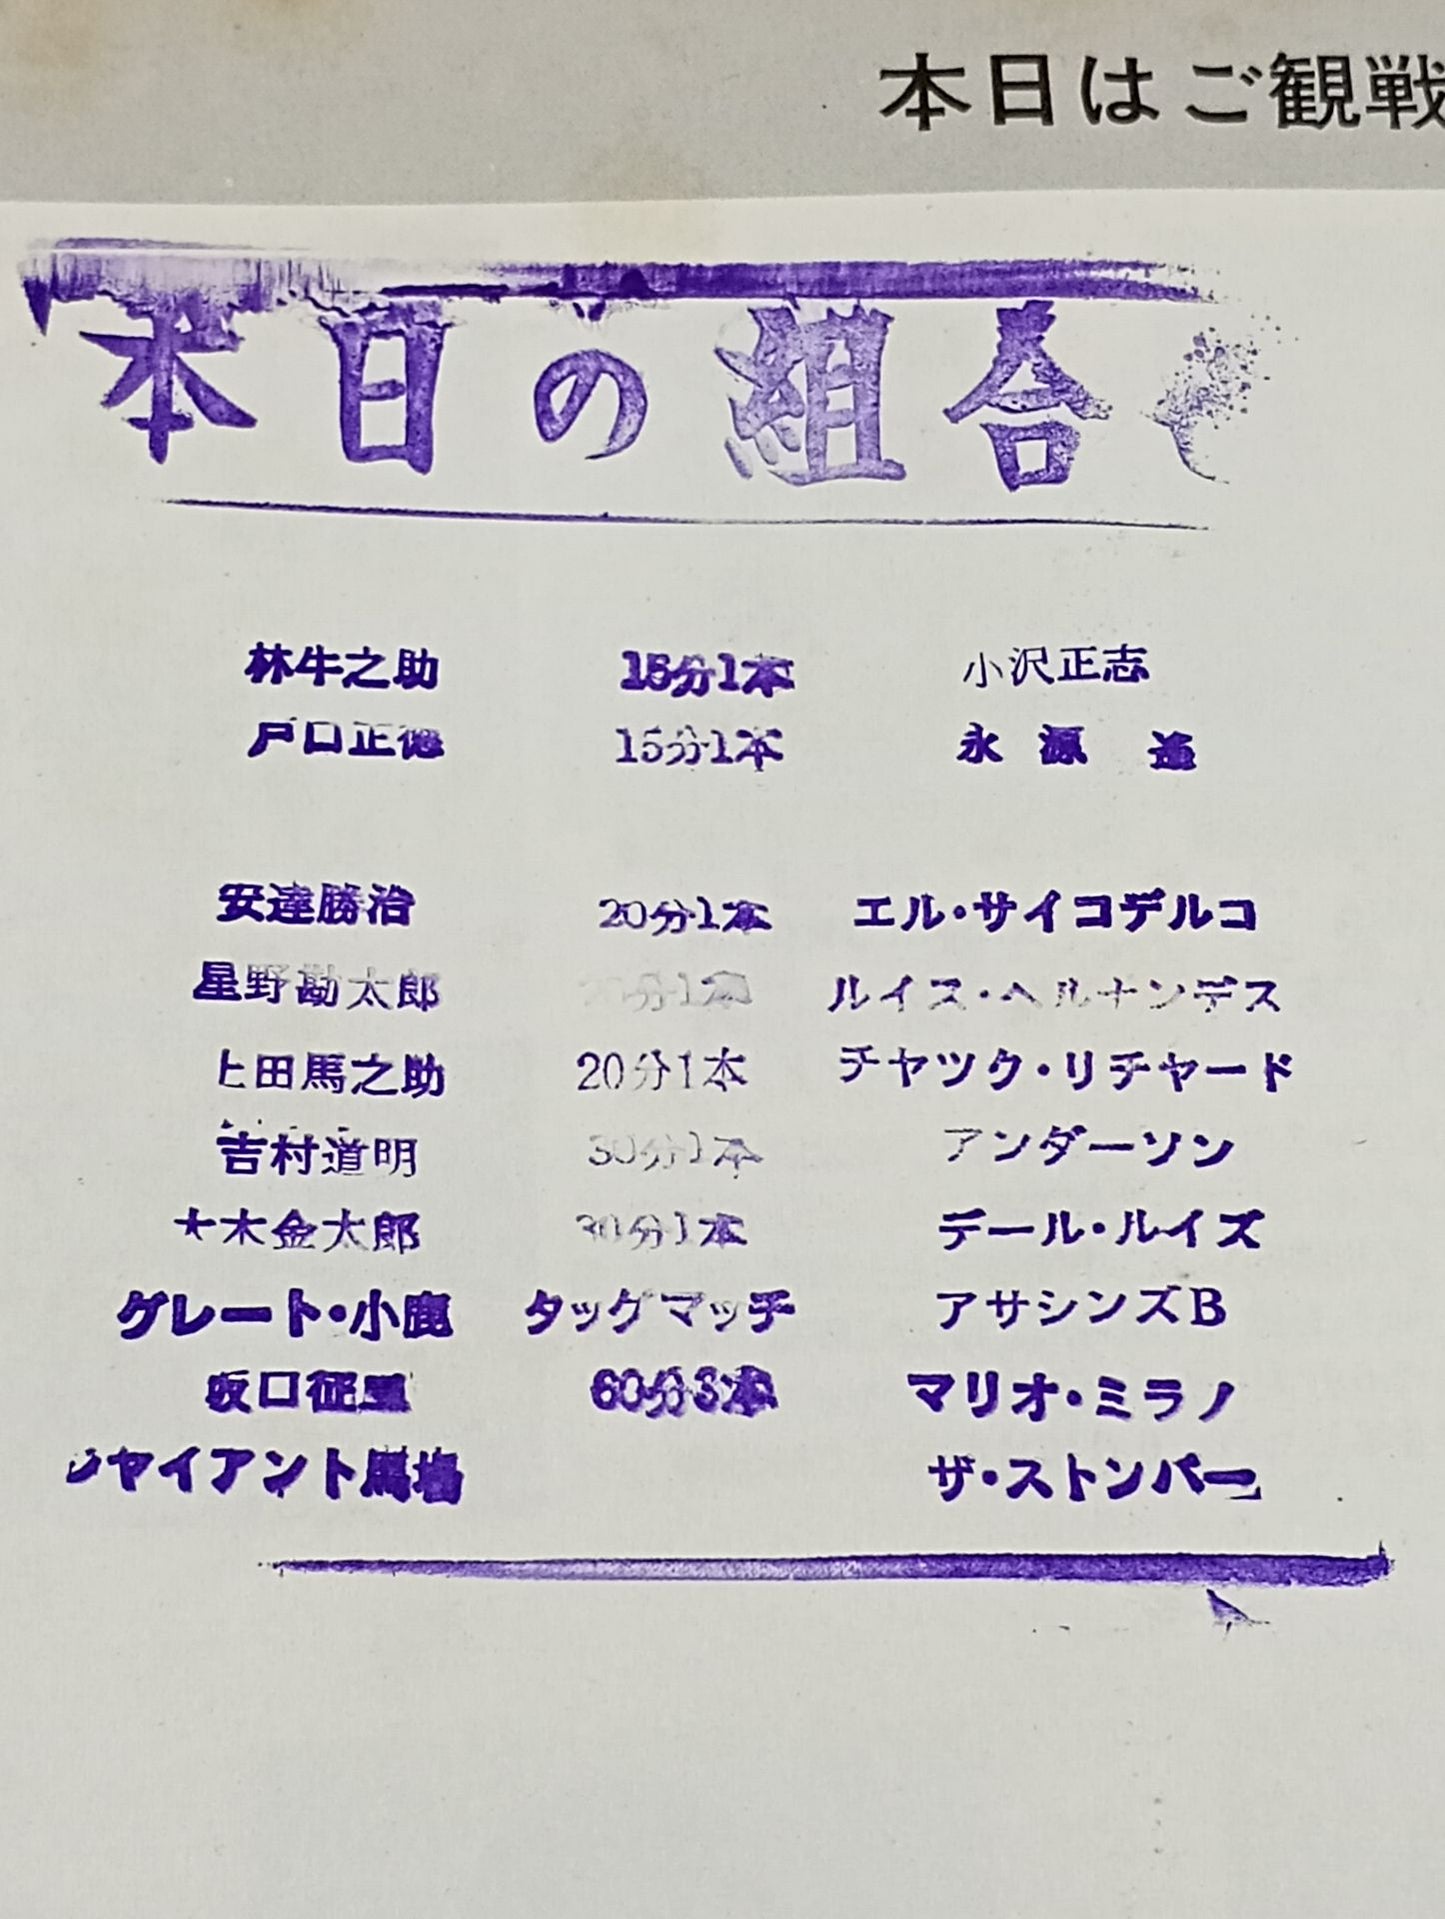 本日はご観戦
本日の組合
林牛之助 15分1本 小沢正志
戸口正徳 15分1本 永源遥
安達勝治 20分1本 エル・サイコデルコ
星野勘太郎 20分1本 ルイス・ヘルナンデス
上田馬之助 20分1本 チヤツク・リチャード
吉村道明 30分1本 アンダーソン
大木金太郎 30分1本 デール・ルイズ
グレート・小鹿 タッグマッチ アサシンズB
坂口征二 60分3本 マリオ・ミラノ
ジャイアント馬場 ザ・ストンパー